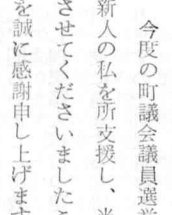 今度の町議会議員選
新人の私を所支援し、
させてくださいました
を誠に感謝申し上げます